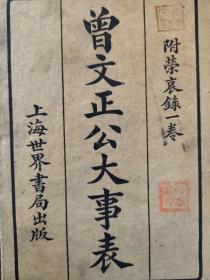 附榮哀錄一卷
曾文正公大事表
上海世界書局出版